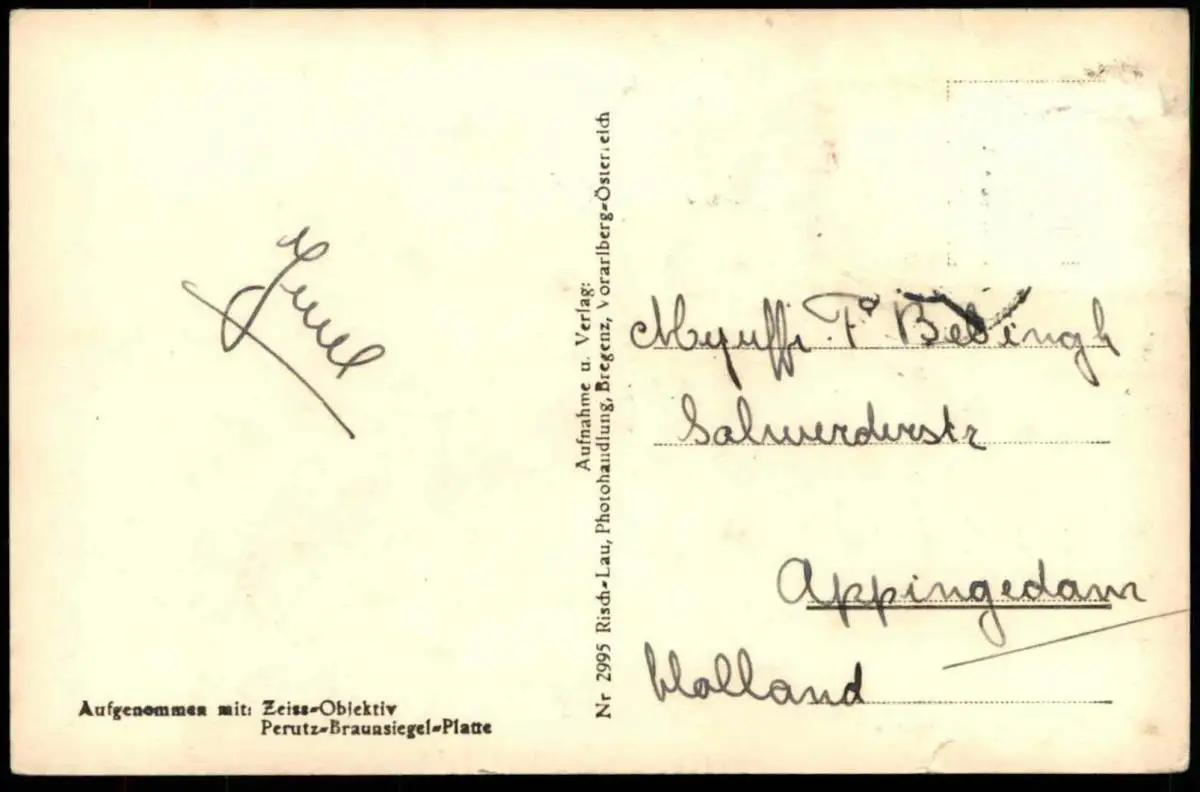 Aufgenommen mit: Zeiss-Objektiv
Perutz-Braunsiegel-Platte
Aufnahme u. Verlag:
Nr 2995 Risch-Lau, Photohandlung, Bregenz, Vorarlberg-Österreich
Mejuffr. F. Bebingh
Solwerderstr
Appingedam
Holland